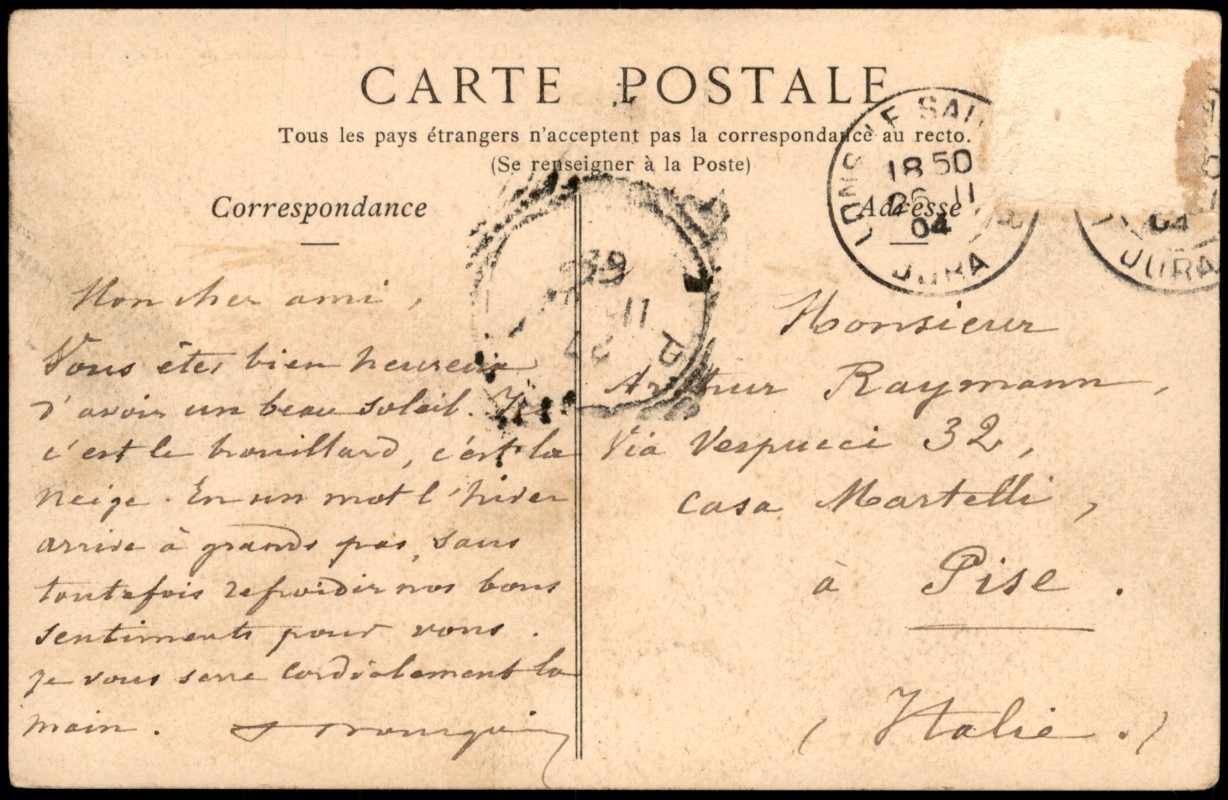 CARTE POSTALE
Tous les pays étrangers n'acceptent pas la correspondance au recto.
(Se renseigner à la Poste)
Correspondance
Adresse
LONS LE SAU
18 50
26 11
04
JURA
04
JURA
11
Mon cher ami,
Vous êtes bien heureux
d'avoir un beau soleil. Ici
c'est le brouillard, c'est la
neige. En un mot l'hiver
arrive à grands pas, sans
toutefois refroidir nos bons
sentiments pour vous.
Je vous serre cordialement la
main.
Monsieur
Arthur Raymann,
Via Vespucci 32,
casa Martelli,
à Pise.
(Italie.)